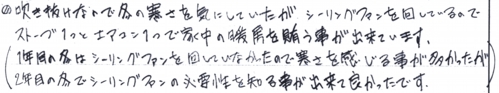 ④吹き抜けなので冬の寒さを気にしていたが シーリングファンを回しているので
ストーブ1つとエアコン1つで家中の暖房を賄う事が出来ています。
(1年目の冬はシーリングファンを回していなかったので寒さを感じる事が多かったが
2年目の冬でシーリングファンの必要性を知る事が出来て良かったです。